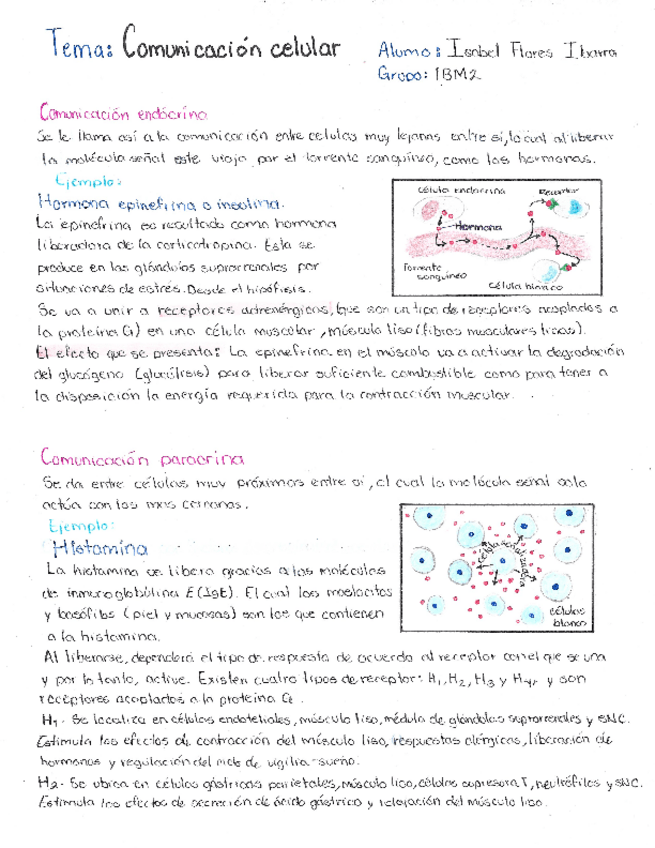 Tema: Comunicación celular
Alumo: Isabel Flores Ibarra
Grupo: 1BM2
Comunicación endócrina
Se le llama así a la comunicación entre celulas muy lejanas entre si, lo cual al liberar
la molécula señal este viaja por el torrente sanguíneo, como las hormonas.
Ejemplo:
Hormona epinefrina o insulina.
La epinefrina es resultado como hormona
liberadora de la corticotropina. Esta se
produce en las glándulas suprarrenales por
situaciones de estrés. Desde el hipófisis.
célula endocrina
Receptor
Hormona
Torrente
sanguíneo
Célula blanco
Se va a unir a receptores adrenérgicos, (que son un tipo de receptores acoplados a
la proteína G) en una célula muscular, músculo liso (fibras musculares lisas).
El efecto que se presenta: La epinefrina en el músculo va a activar la degradación
del glucógeno (glucólisis) para liberar suficiente combustible como para tener a
la disposición la energía requerida para la contracción muscular.
Comunicación paracrina
Se da entre células muy próximas entre si, el cual la molécula señal solo
actúa con las mas cercanas.
Ejemplo:
Histamina
La histamina se libera gracias a las moléculas
de inmunoglobulina E (IgE). El cual los mastocitos
y basófilos (piel y mucosas) son los que contienen
a la histamina.
Célula señalizadora
células
blanco
Al liberarse, dependerá el tipo de respuesta de acuerdo al receptor con el que se una
y por lo tanto, active. Existen cuatro tipos de receptor: H1, H2, H3 y H4, y son
receptores acoplados a la proteína G.
H1. Se localiza en células endoteliales, músculo liso, médula de glándulas suprarrenales y SNC.
Estimula los efectos de contracción del músculo liso, respuestas alérgicas, liberación de
hormonas y regulación del ciclo de vigilia-sueño.
H2. Se ubica en células gástricas parietales, músculo liso, células supresora T, neutrófilos y SNC.
Estimula los efectos de secreción de ácido gástrico y relajación del músculo liso.